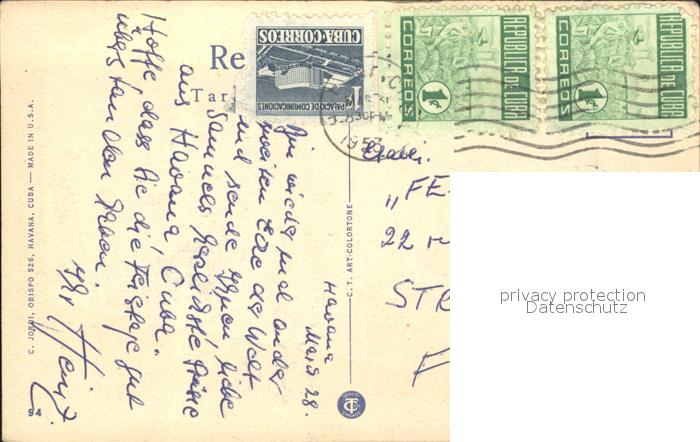 C. JORDI, OBISPO 526, HAVANA, CUBA — MADE IN U.S.A.
94
Re
Tar
C. T. ART-COLORTONE
CUBA·CORREOS
PALACIO DE COMUNICACIONES
1¢
REPUBLICA DE CUBA
CORREOS
1¢
REPUBLICA DE CUBA
CORREOS
1¢
1953
Havana
März 28.
Bin wieder mal an der
Ecke der Welt
und sende Ihnen liebe
herzlichste Grüße
aus Havana, Cuba.
Hoffe, dass Sie die Feiertage gut
überstanden haben.
Ihr Heinz.
„FE
22
STR
privacy protection
Datenschutz